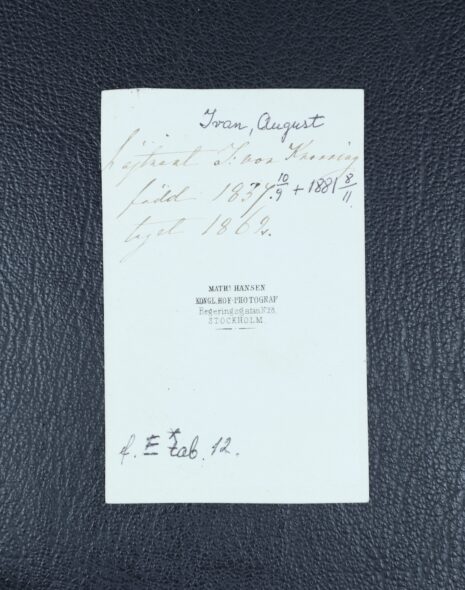 Ivan, August
Löjtnant I. von Knorring
född 1837 10/9 + 1881 8/11
taget 1862.
MATHS HANSEN
KONGL. HOF-PHOTOGRAF
Regeringsgatan N°18
STOCKHOLM
f. E tab. 12.